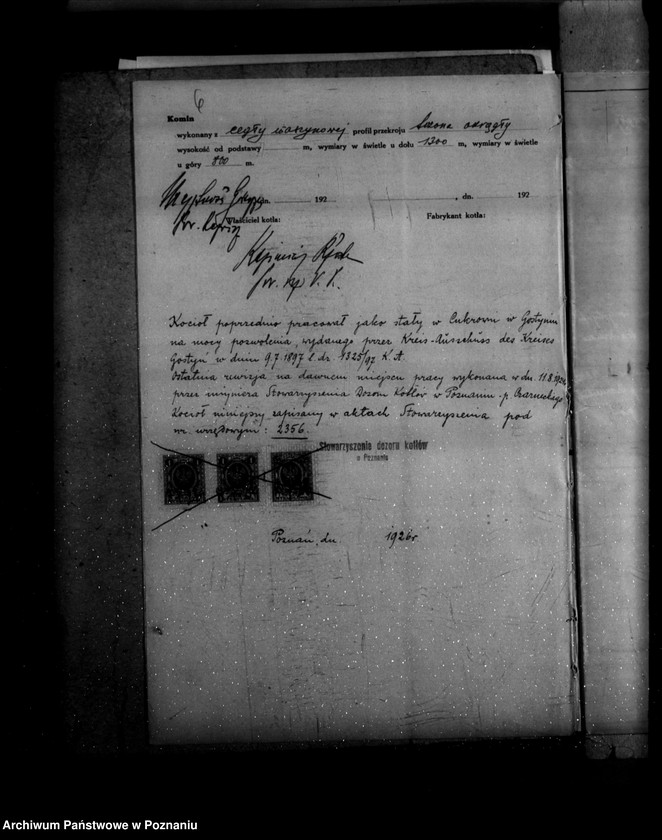 6
Komin
wykonany z cegły maszynowej profil przekroju okrągły
wysokość od podstawy m, wymiary w świetle u dołu 1300 m, wymiary w świetle
u góry 800 m.
dn. 192 , dn. 192
Właściciel kotła: Fabrykant kotła:
Kocioł poprzednio pracował jako stały w Cukrowni w Gostyniu
na mocy pozwolenia, wydanego przez Kreis-Ausschuss des Kreises
Gostyń w dniu 9.7.1897 l. dz. 1325/97 K.A.
Ostatnia rewizja na dawnem miejscu pracy wykonana w dn. 11.8.
przez inżyniera Stowarzyszenia Dozoru Kotłów w Poznaniu p. Czarneckiego
Kocioł niniejszy zapisany w aktach Stowarzyszenia pod
nr. urzędowym: 2356.
Stowarzyszenie dozoru kotłów
w Poznaniu
Poznań, dn. 1926 r
Archiwum Państwowe w Poznaniu